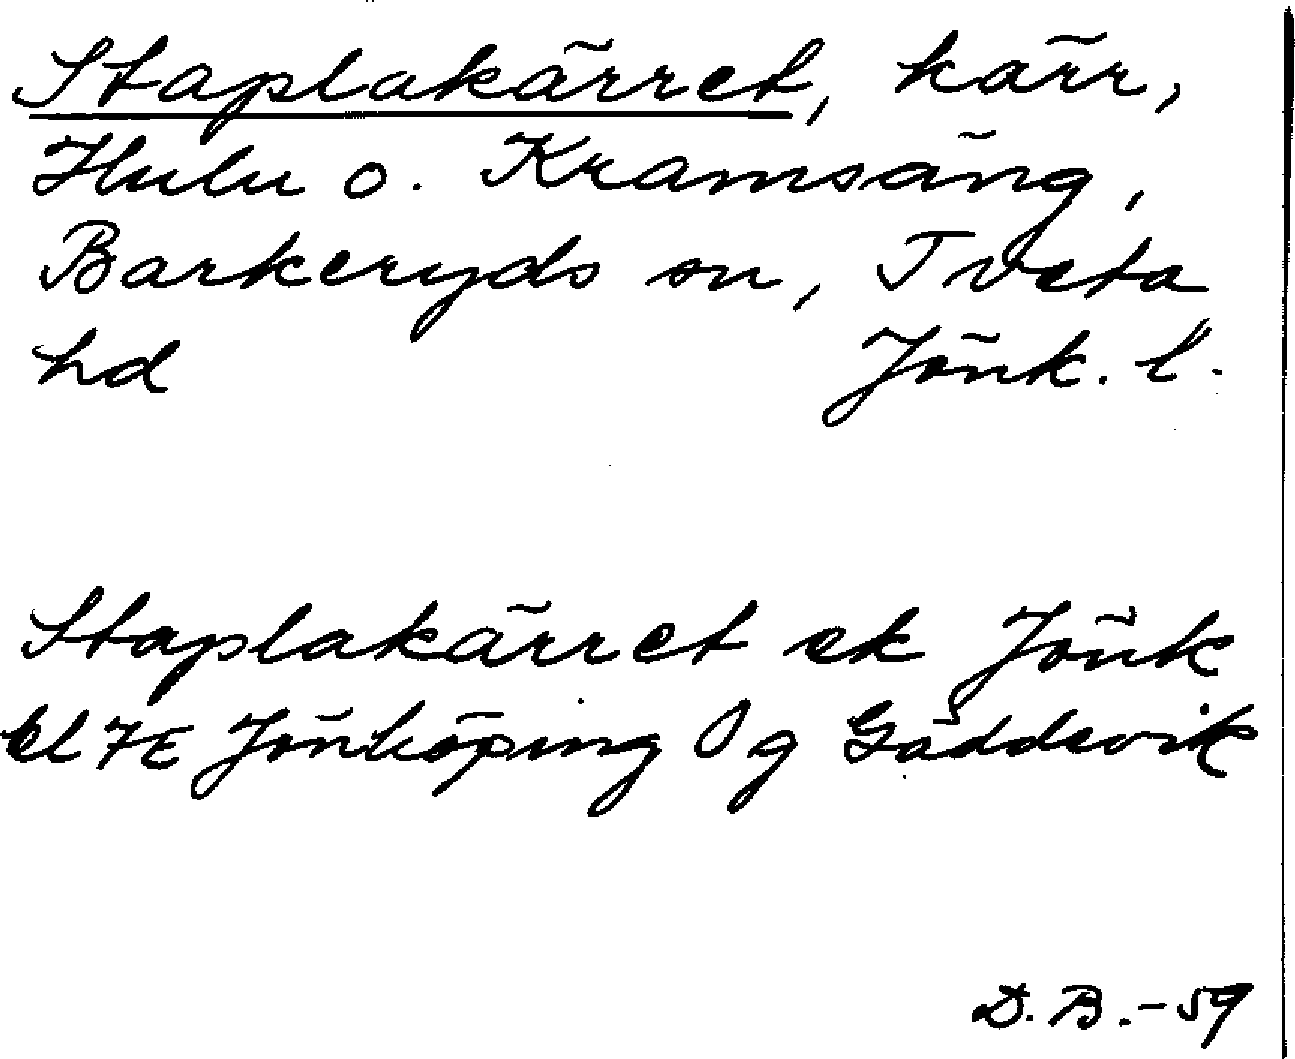 Staplakärret, kärr,
Hulu o. Kramsäng,
Barkeryds sn, Tveta
hd Jönk. l.
Staplakärret ek Jönk
bl 7E Jönköping Og Gäddevik
D. B. - 59